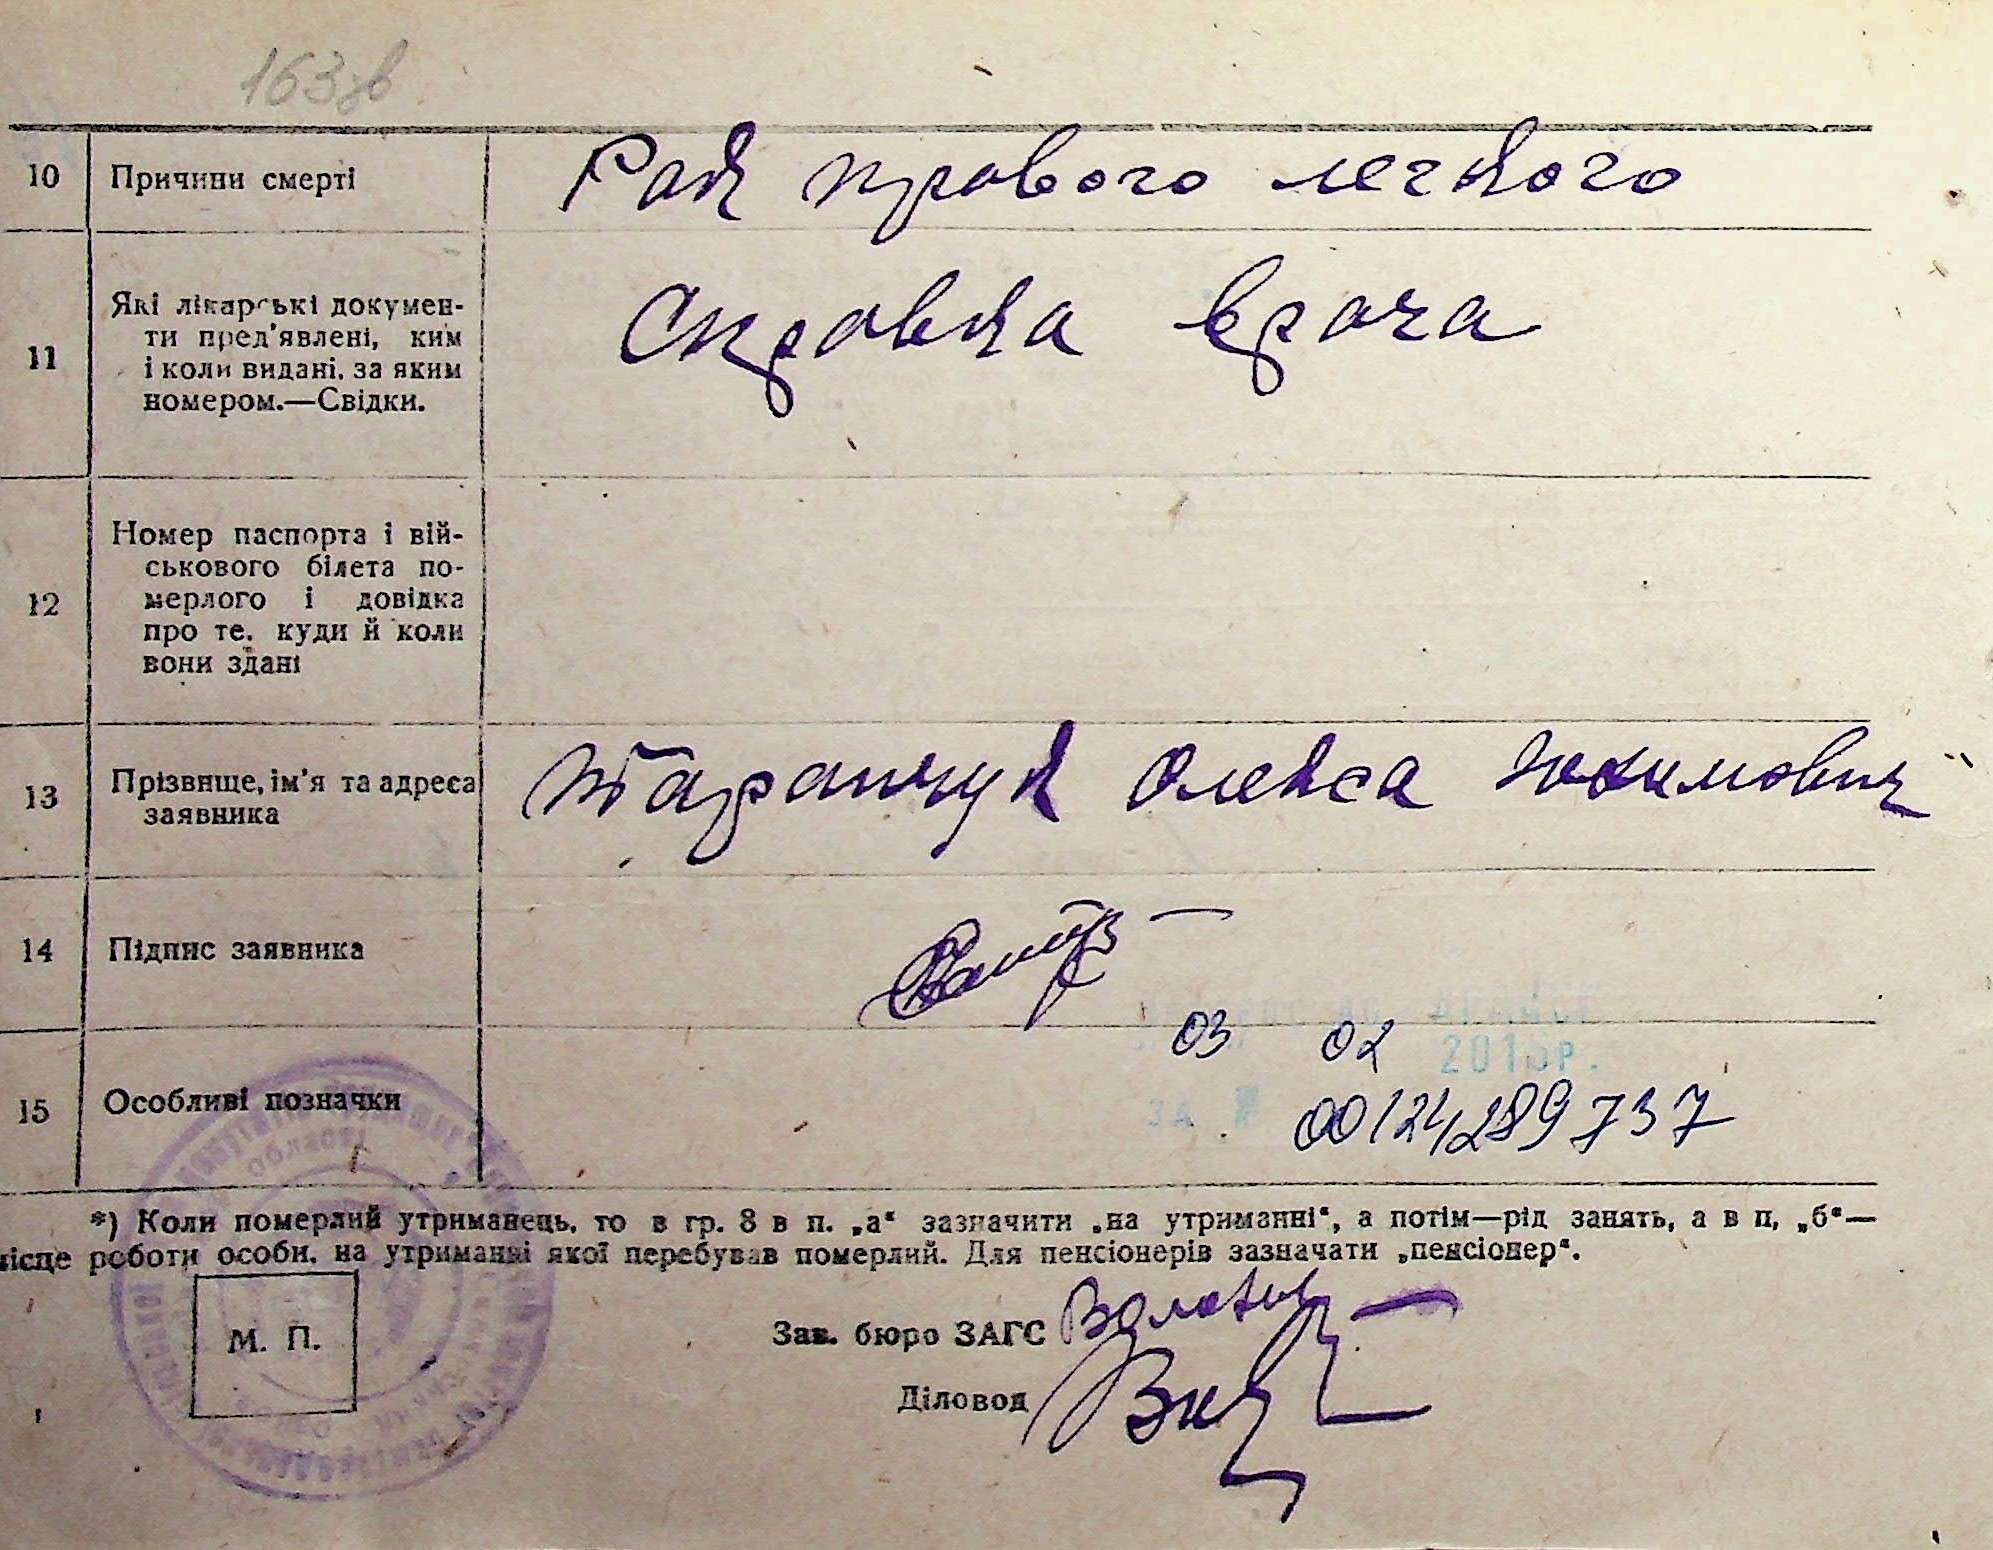 163зв
10 Причини смерті Рак правого легкого
11 Які лікарські докумен-
ти пред'явлені, ким
і коли видані, за яким
номером.—Свідки.
Справка врача
12 Номер паспорта і вій-
ськового білета по-
мерлого і довідка
про те, куди й коли
вони здані
13 Прізвище, ім'я та адреса
заявника
Таранчук Олекса Юхимович
14 Підпис заявника
15 Особливі позначки
03 02
2015р.
ЗА № 00124289737
області
*) Коли померлий утриманець, то в гр. 8 в п. „а“ зазначити „на утриманні“, а потім—рід занять, а в п, „б“—
місце роботи особи, на утриманні якої перебував померлий. Для пенсіонерів зазначати „пенсіонер“.
М. П.
Зав. бюро ЗАГС
Діловод